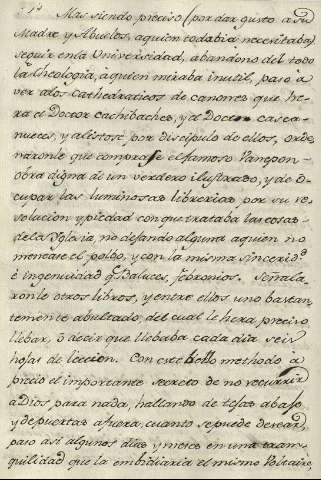 Mas siendo preciso (por dar gusto a su
Madre y Abuelos, aquien todabia necesitaba)
seguir en la Universidad, abandonó del todo
la theologia, à quien miraba inutil, pasó à
ver alos Cathedraticos de canones que he-
ra el Doctor cachibaches, y el Doctor casca-
nueces, y alistose por discipulo de ellos, orde
naronle que comprase el famoso Vanespen
obra digna de un verdero ilustrado, y de o-
cupar las luminosas librerias por su re-
solucion, y piedad con que trataba las cosas
dela Yglesia, no dejando alguna aquien no
menease el polbo, y con la misma sincerid.d
è ingenuidad q.e Daluces, febronios. Señala-
ronle otros libros, y entre ellos uno bastan-
temente abultado, del cual le hera preciso
llebar, ò decir que llebaba cada dia seis
hojas de leccion. Con este bello methodo a
el importante secreto de no recurrir
à Dios para nada, hallando de tejas abajo,
y de puertas afuera, cuanto se puede desear,
paso asi algunos dias y meses en una tran-
quilidad que la embidiaria el mismo Voltaire,